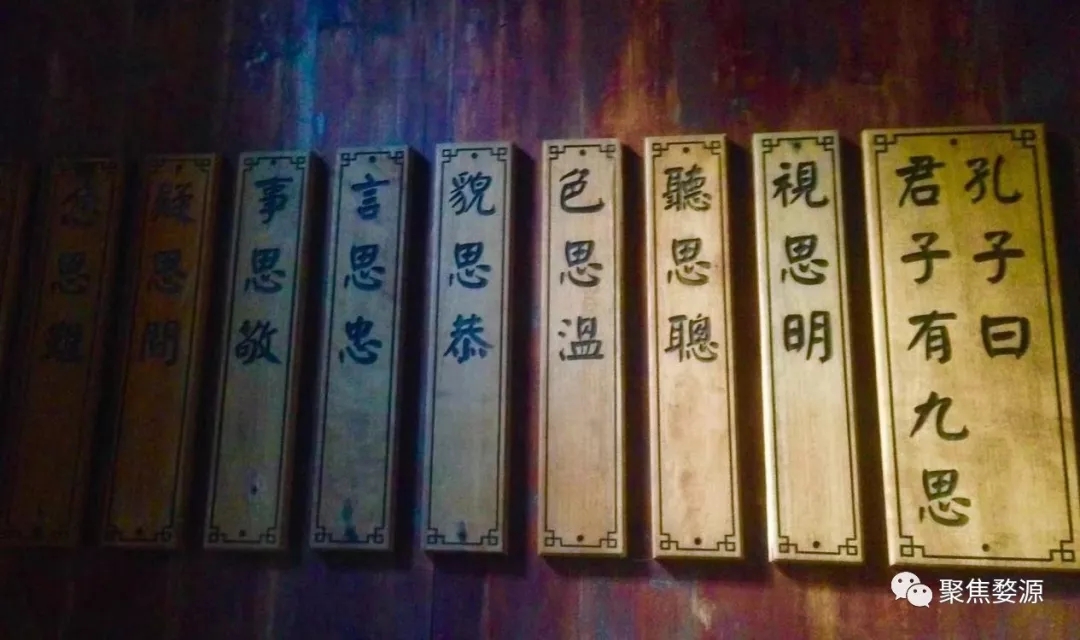 孔子曰
君子有九思
視思明
聽思聰
色思溫
貌思恭
言思忠
事思敬
疑思問
忿思難
聚焦婺源